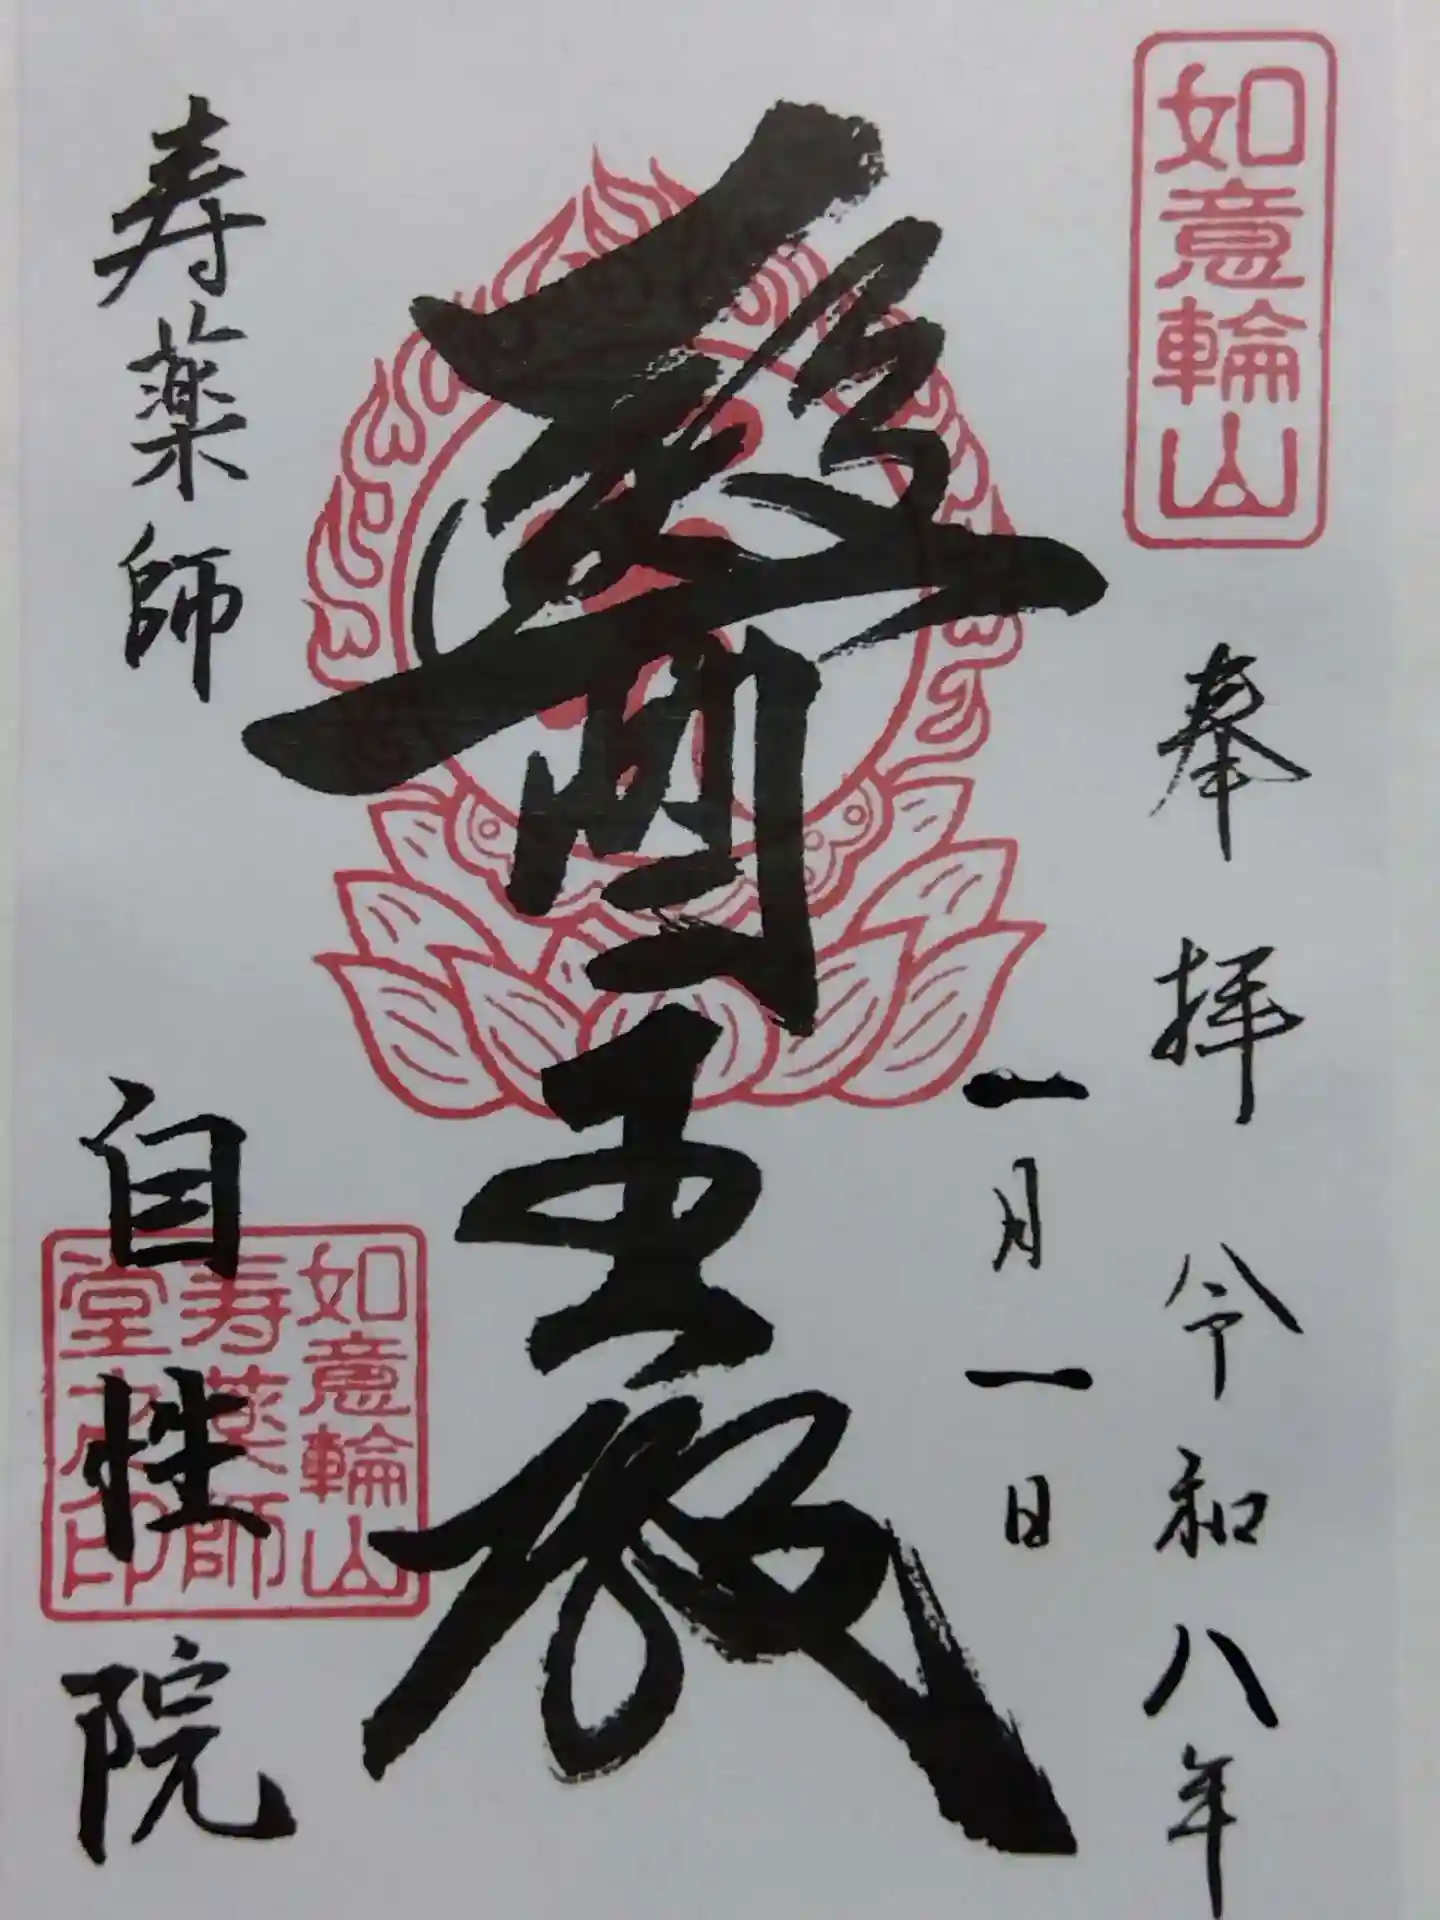 如意輪山
奉拝 令和八年
一月一日
醫王殿
寿薬師
自性院
如意輪山
寿薬師
堂 印